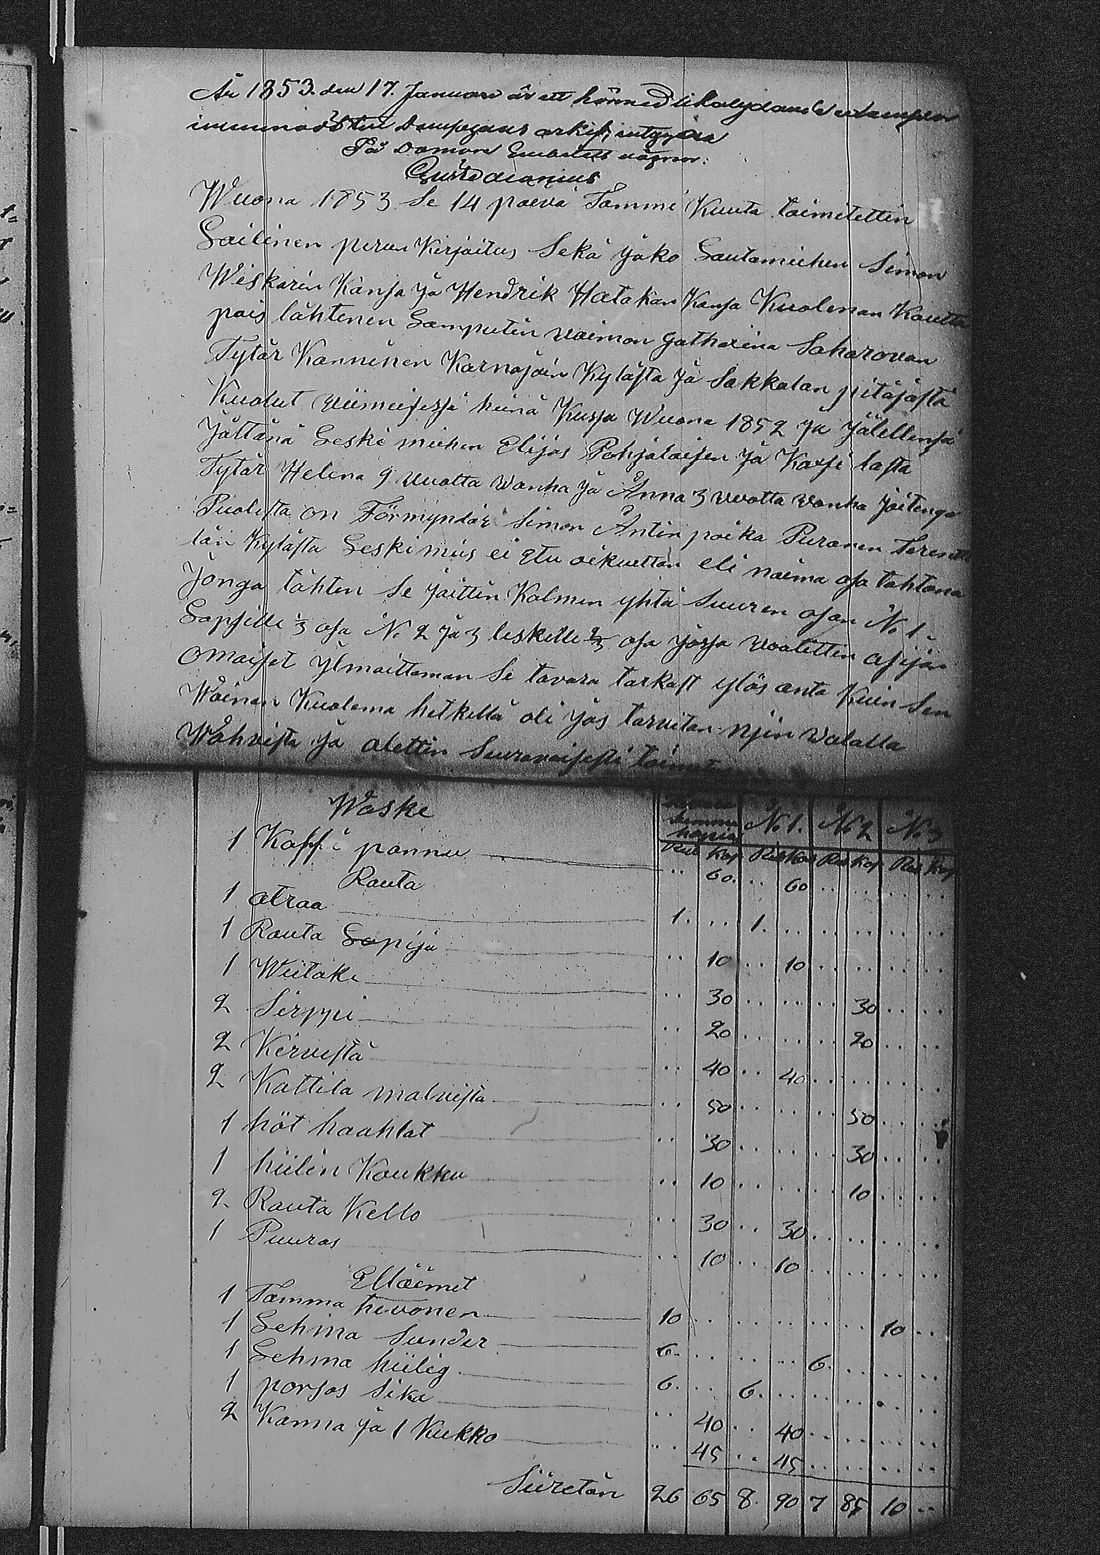 År 1853. den 17. Januari är ett
På Domare Embetets vägnar:
Wuona 1853 Se 14 päevä Tammi Kuuta toimitettin
Lailinen perun Kirjoitus Sekä Jako Lautamiehen Simon
Wiskarin Kansa Ja Hendrik Hatakan Kansa Kuoleman Kautta
pois lähtenen Lamputin vaimon Catharina Saharovan
Tytär Kannissen Karnajoin Kylästa Ja Sakkolan pitäjästä
Kuolut viimeisessä heinä Kussa Wuona 1852 Ja Jälellensä
Jättänä Leski miehen Elijas Pohjalaisen Ja Kaxsi lasta
Tytär Helena 9 vuotta wanha Ja Anna 3 vuotta vanha Joitenga
Puolesta on Förmyndär Simon Äntin poika Puronen
län Kylästa Leski mies ei etu oikuettan eli naima osa tahtona
Jonga tähten Se Jaittin Kolmen yhtä Suuren osan No 1-
Lapselle ⅓ osa No 2 Ja 3 leskelle ⅔ osa Jossa vaalettin asijan
omaiset ylmoittaman Se tavara tarkast ylös anta Kuin Sen
Wainan Kuolema hetkellä oli Jos tarvitan niin valalla
Wahvista Ja alettin Seuravaisesti
Waske
No 1. No 2 No 3
Rub Kop Rub Kop Rub Kop Rub Kop
1 Kaffi pannu 60. 60
Rauta
1 atraa 1. 1.
1 Rauta Lapija 10 10
1 Wiitake 30 30
2 Sirppi 20 20
2 Kirvestä 40 40
2 Kattila malvista 50 50
1 höt haahlat 30 30
1 hiilin Koukku 10 10
2 Rauta Kello 30 30
1 Puuras 10 10
Elläimet
1 Tamma hevonen 10 10
1 Lehma Sunder 6. 6.
1 Lehma hiilig 6. 6.
1 porsas Sika 40 40
2 Kanna Ja 1 Kukko 45 45
Siiretän 26 65 8. 90 7 85 10